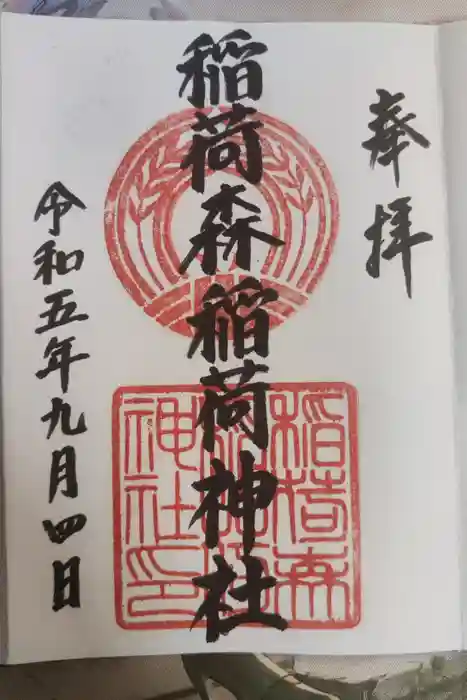 奉拝
稲荷森稲荷神社
令和五年九月四日
稲荷森
稲荷
神社印